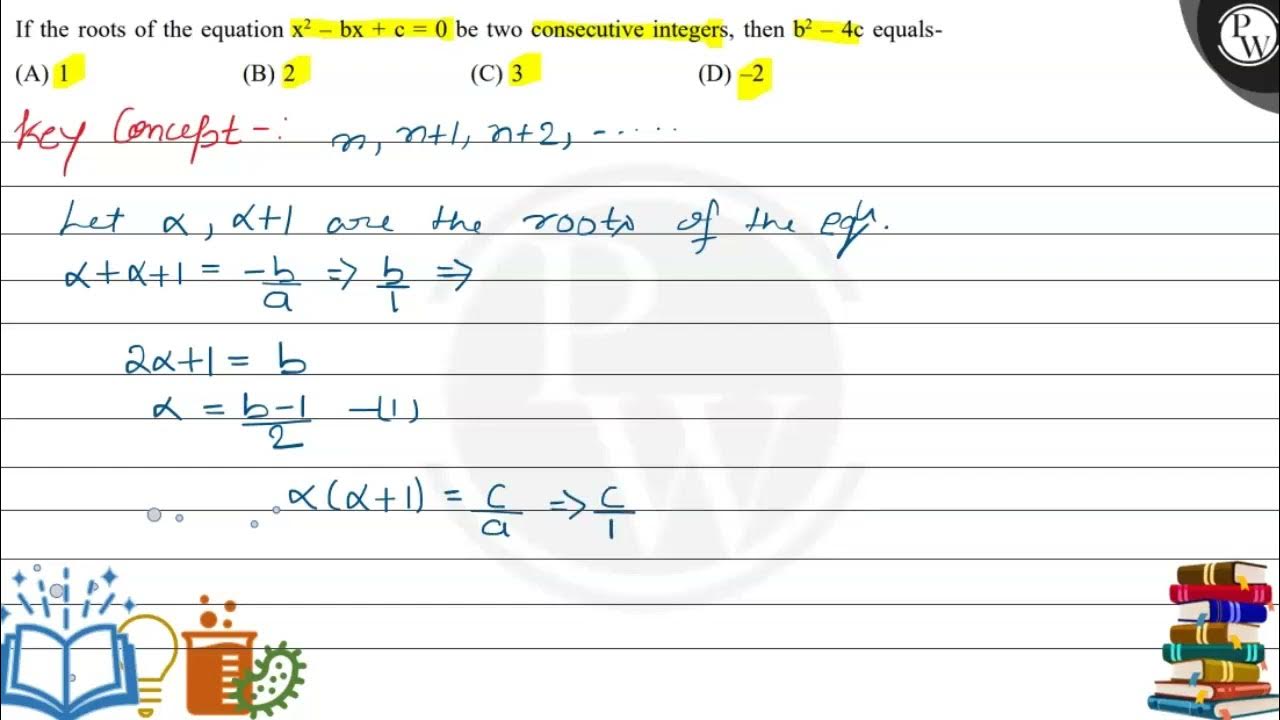 If the roots of the equation x² – bx + c = 0 be two consecutive integers, then b² – 4c equals-
(A) 1 (B) 2 (C) 3 (D) –2
Key Concept -: n, n+1, n+2, .....
Let α, α+1 are the roots of the eqn.
α+α+1 = -b/a => b/1 =>
2α+1 = b
α = b-1/2 -(1)
α(α+1) = c/a => c/1
PW
PW